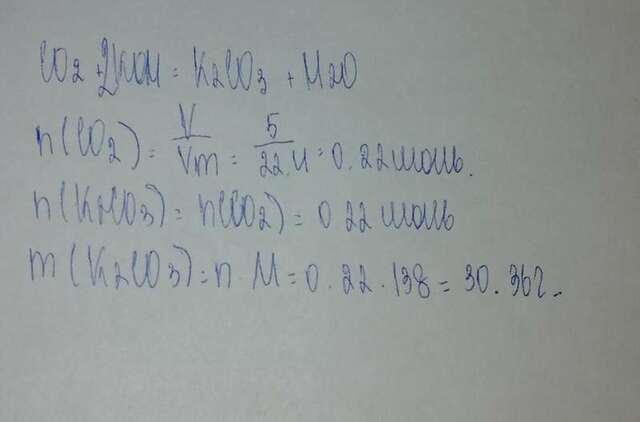 CO2 + 2KOH = K2CO3 + H2O
n(CO2) = V/Vm = 5/22.4 = 0.22 моль.
n(K2CO3) = n(CO2) = 0.22 моль
m(K2CO3) = n · M = 0.22 · 138 = 30.36г.